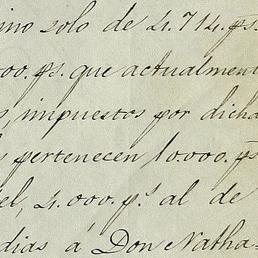 ino solo de 4.714. ps.
00. ps. que actualmen
s, impuestos por dicha
s pertenecen 10.000. ps
el, 4.000. ps. al de
dias á Don Natha-